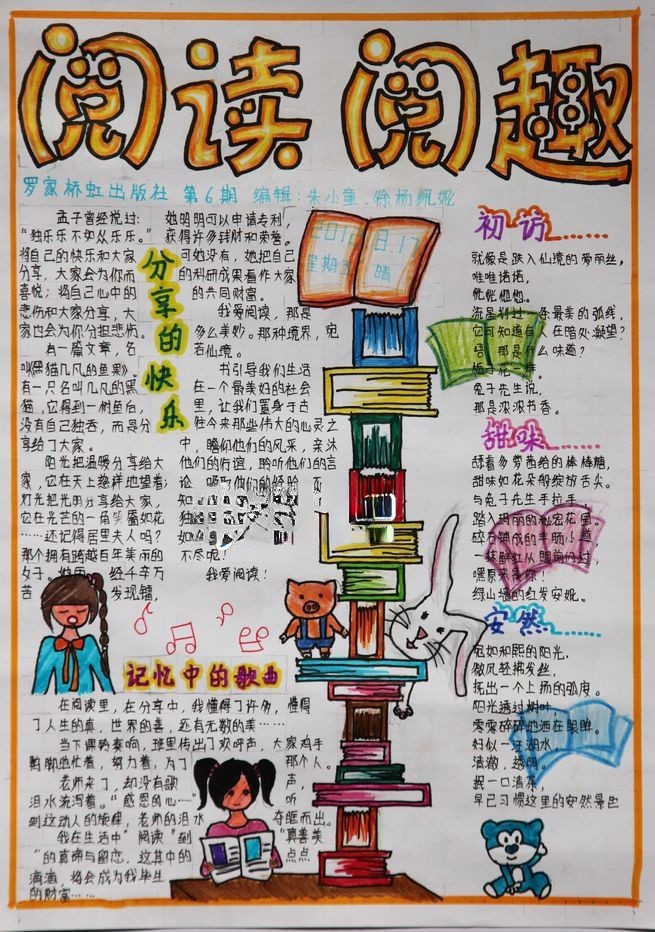 阅读阅趣
罗家桥虹出版社 第6期 编辑:朱小童、徐杨佩妮
分享的快乐
孟子曾经说过:
“独乐乐不如众乐乐。”
将自己的快乐和大家
分享,大家会为你而
喜悦;将自己心中的
悲伤和大家分享,大
家也会为你分担悲伤。
有一篇文章,名
叫《黑猫几凡的鱼果》。
有一只名叫几凡的黑
猫,它得到一树鱼后,
没有自己独吞,而是分
享给了大家。
阳光把温暖分享给大
家,它在天上慈祥地望着;
灯光把光明分享给大家,
它在光芒的一角笑靥如花
……还记得居里夫人吗?
那个拥有跨越百年美丽的
女子。她用 经千辛万
苦 发现镭,
她明明可以申请专利,
获得许多钱财和荣誉。
可她没有,她把自己
的科研成果看作大家
的共同财富。
我爱阅读,那是
多么美妙。那种境界,宛
若仙境。
书引导我们生活
在一个最美好的社会
里,让我们置身于古
往今来那些伟大的心灵之
中,瞻仰他们的风采,亲沐
他们的行谊,聆听他们的言
论
知
独
如
不尽呢!
我爱阅读!
2016.8.17
星期五 晴
初访……
就像是跌入仙境的爱丽丝,
唯唯诺诺,
忙忙忽忽。
流星划过一条最美的弧线,
它可知道有人在暗处凝望?
唔,那是什么味道?
栀子花一样。
兔子先生说,
那是浓浓书香。
甜味……
舔着多萝茜给的棒棒糖,
甜味如花朵般绽放舌尖。
与兔子先生手拉手,
踏入玛丽的秘密花园。
碎石铺成的羊肠小道,
一抹鲜红从眼前闪过,
嘿原来是你!
绿山墙的红发安妮。
安然……
宛如和熙的阳光,
微风轻拂发丝,
抚出一个上扬的弧度。
阳光透过树叶,
零零碎碎地洒在眼眸。
好似一汪湖水,
清澈,透明。
抿一口清茶,
早已习惯这里的安然
记忆中的歌曲
在阅读里,在分享中,我懂得了许多,懂得
了人生的真,世界的善,还有无数的美……
当下课铃奏响,班里传出了欢呼声,大家鸡手
鸭脚地忙着,努力着,为了 那个人。
老师来了,却没有歌 声,
泪水流泻着。“感恩的心……” 听
到这动人的旋律,老师的泪水 夺眶而出。
我在生活中“阅读”到 “真善美
”的真谛与留恋,这其中的 点点
滴滴,将会成为我毕生
的财富……